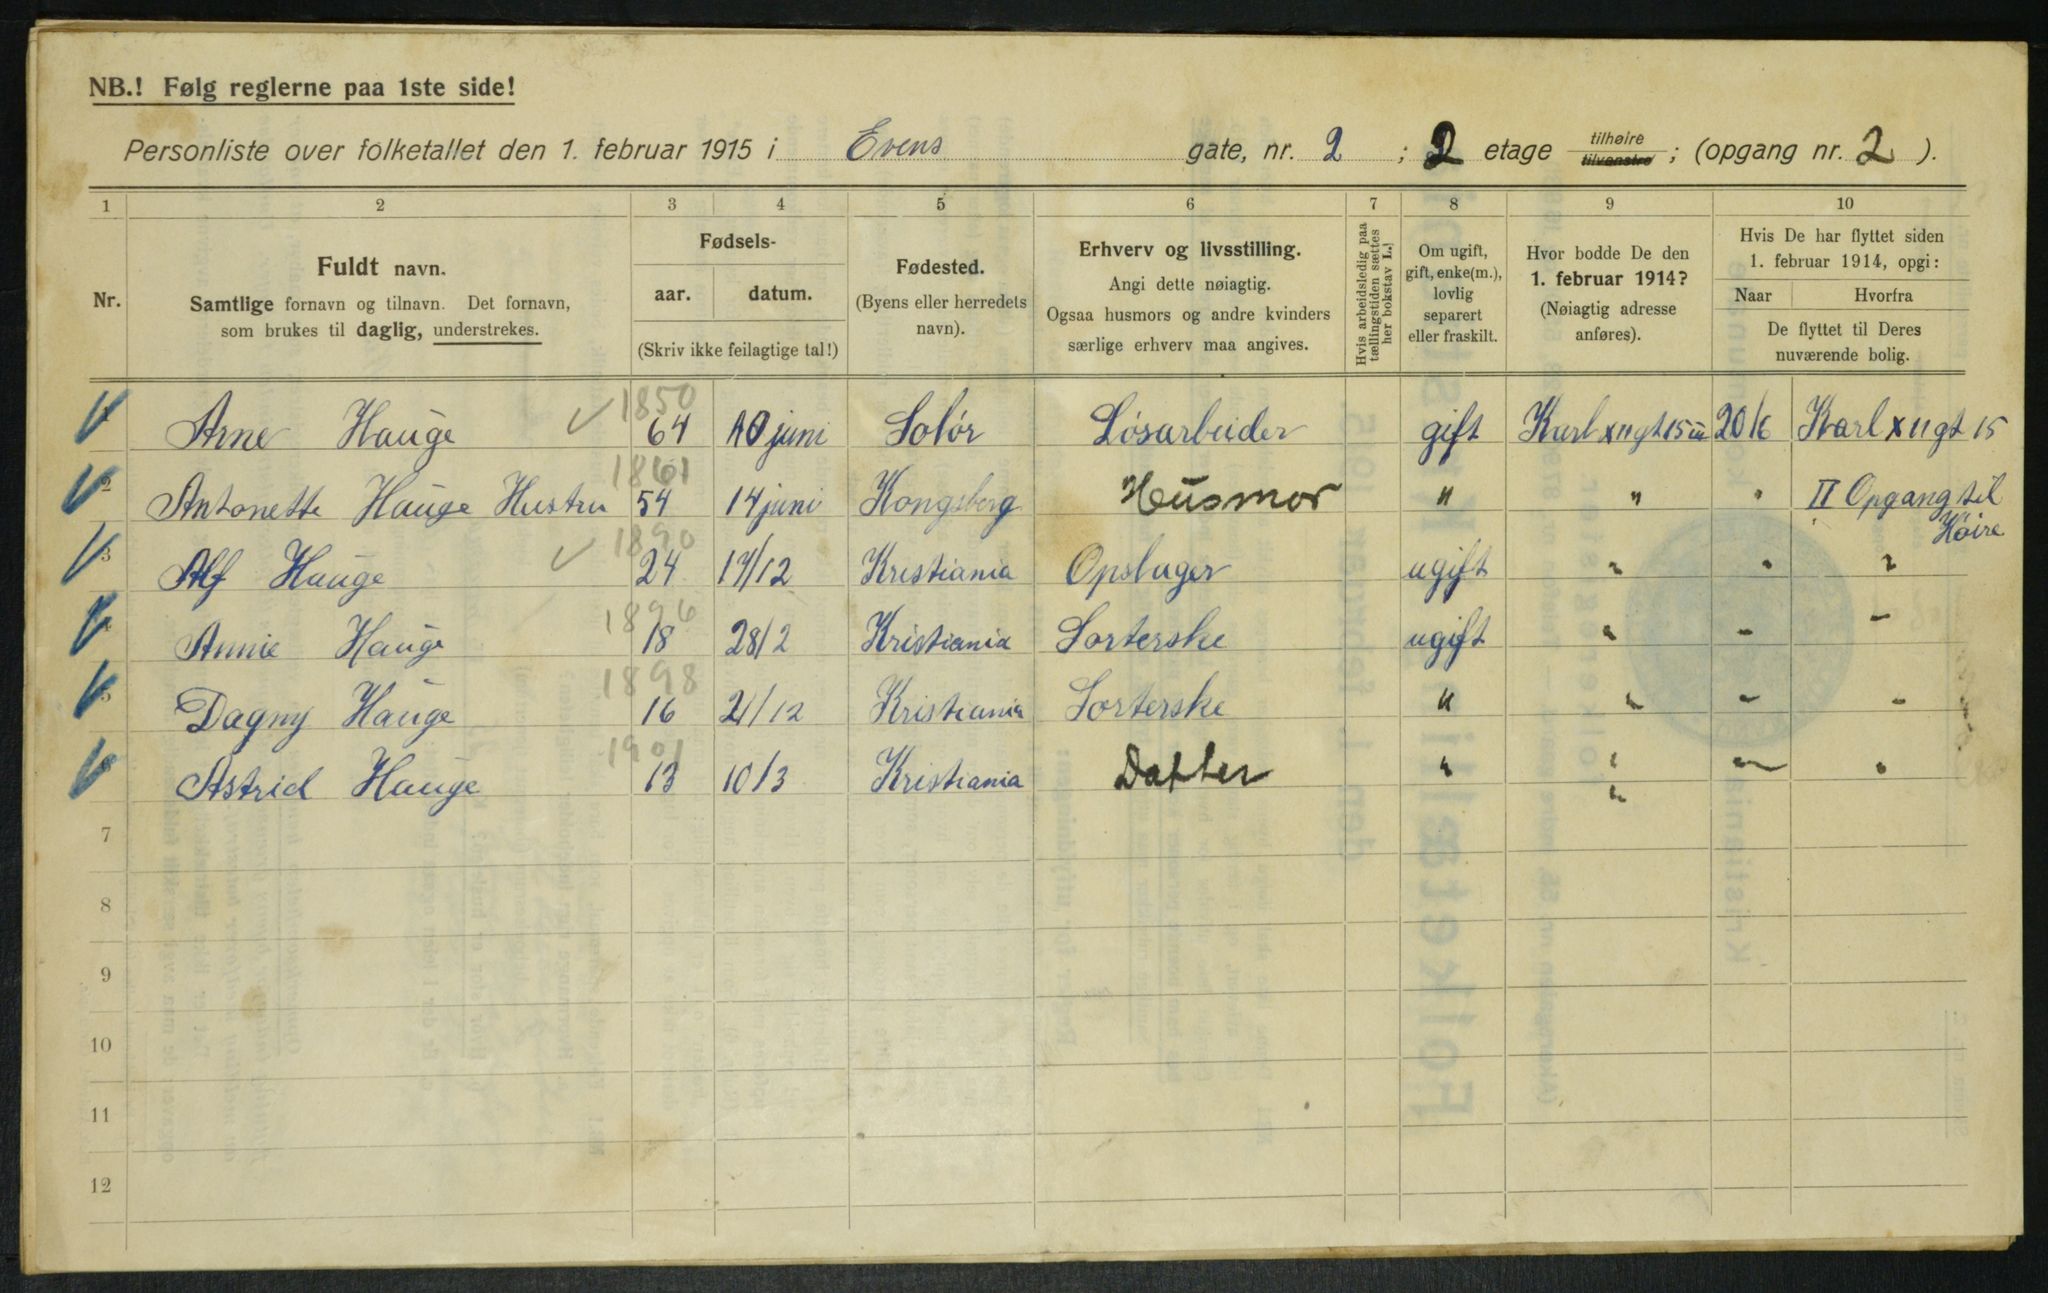 NB.! Følg reglerne paa 1ste side!
Personliste over folketallet den 1. februar 1915 i Evens gate, nr. 2 ; 2 etage tilhøire tilvenstre ; (opgang nr. 2 ).
1 2 3 4 5 6 7 8 9 10
Nr.
Fuldt navn.
Samtlige fornavn og tilnavn. Det fornavn,
som brukes til daglig, understrekes.
Fødsels-
aar. datum.
(Skriv ikke feilagtige tal!)
Fødested.
(Byens eller herredets
navn).
Erhverv og livsstilling.
Angi dette nøiagtig.
Ogsaa husmors og andre kvinders
særlige erhverv maa angives.
Hvis arbeidsledig paa
tællingstiden sættes
her bokstav L.!
Om ugift,
gift, enke(m.),
lovlig
separert
eller fraskilt.
Hvor bodde De den
1. februar 1914?
(Nøiagtig adresse
anføres).
Hvis De har flyttet siden
1. februar 1914, opgi:
Naar Hvorfra
De flyttet til Deres
nuværende bolig.
1850
Arne Hauge 64 10 juni Solör Lösarbeider gift Karl XII gt 15 III 20/6 Karl XII gt 15
1861
2 Antonette Hauge Hustru 54 14 juni Kongsberg Husmor " " " II Opgang til
Höire
1890
3 Alf Hauge 24 17/12 Kristiania Opslager ugift " " "
1896
4 Annie Hauge 18 28/2 Kristiania Sorterske ugift " " "
1898
5 Dagny Hauge 16 21/12 Kristiania Sorterske " " " "
1901
6 Astrid Hauge 13 10/3 Kristiania Datter " " " "
"
7
8
9
10
11
12